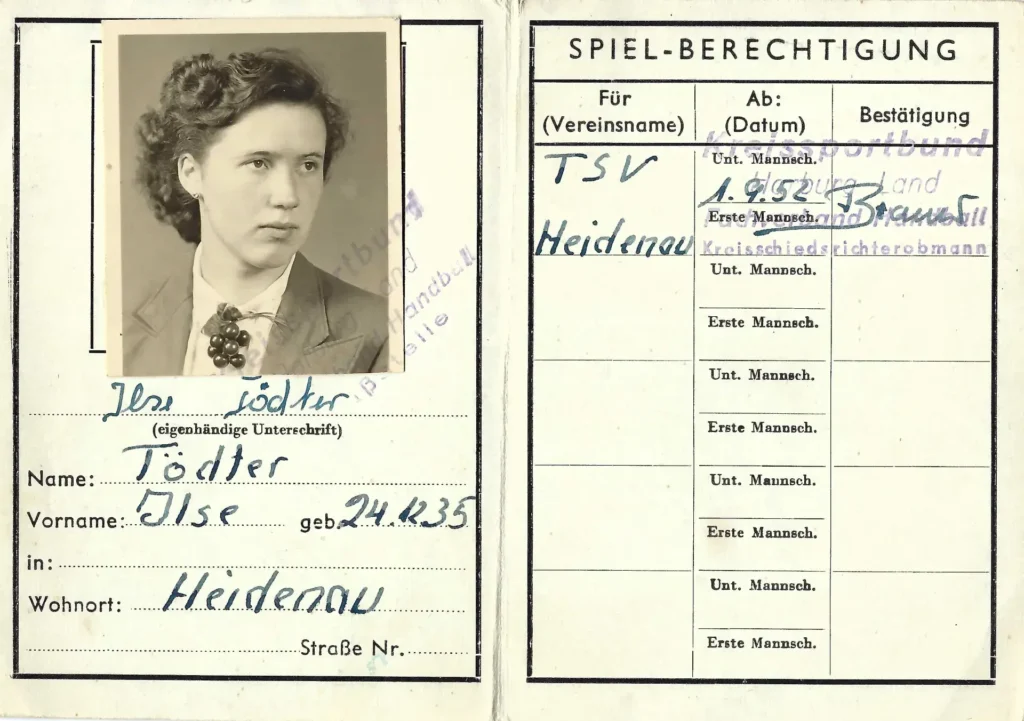 Ilse Tödter
(eigenhändige Unterschrift)
Name: Tödter
Vorname: Ilse geb. 24.12.35
in:
Wohnort: Heidenau
Straße Nr.
Handball
SPIEL-BERECHTIGUNG
Für
(Vereinsname)
Ab:
(Datum)
Bestätigung
TSV
Heidenau
Unt. Mannsch.
1.9.52
Erste Mannsch.
Kreissportbund
Harburg-Land
Fachverband Handball
Kreisschiedsrichterobmann
Unt. Mannsch.
Erste Mannsch.
Unt. Mannsch.
Erste Mannsch.
Unt. Mannsch.
Erste Mannsch.
Unt. Mannsch.
Erste Mannsch.